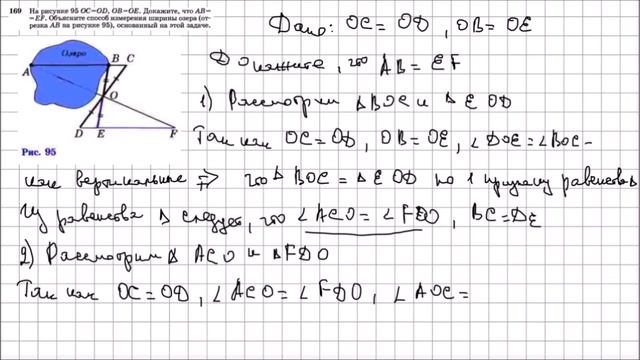 169 На рисунке 95 OC=OD, OB=OE. Докажите, что AB=
=EF. Объясните способ измерения ширины озера (от-
резка AB на рисунке 95), основанный на этой задаче.
Озеро
A B C
O
D E F
Рис. 95
Дано: OC = OD, OB = OE
Докажите, что AB = EF
1) Рассмотрим Δ BOC и Δ EOD
Так как OC = OD, OB = OE, ∠DOE = ∠BOC -
как вертикальные ⇒ что Δ BOC = Δ EOD по 1 признаку равенства
Из равенства Δ следует, что ∠ACO = ∠FDO, BC = DE
2) Рассмотрим Δ ACO и Δ FDO
Так как OC = OD, ∠ACO = ∠FDO, ∠AOC =